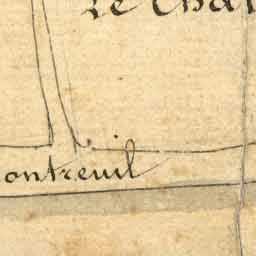 Le Cha
ontreuil